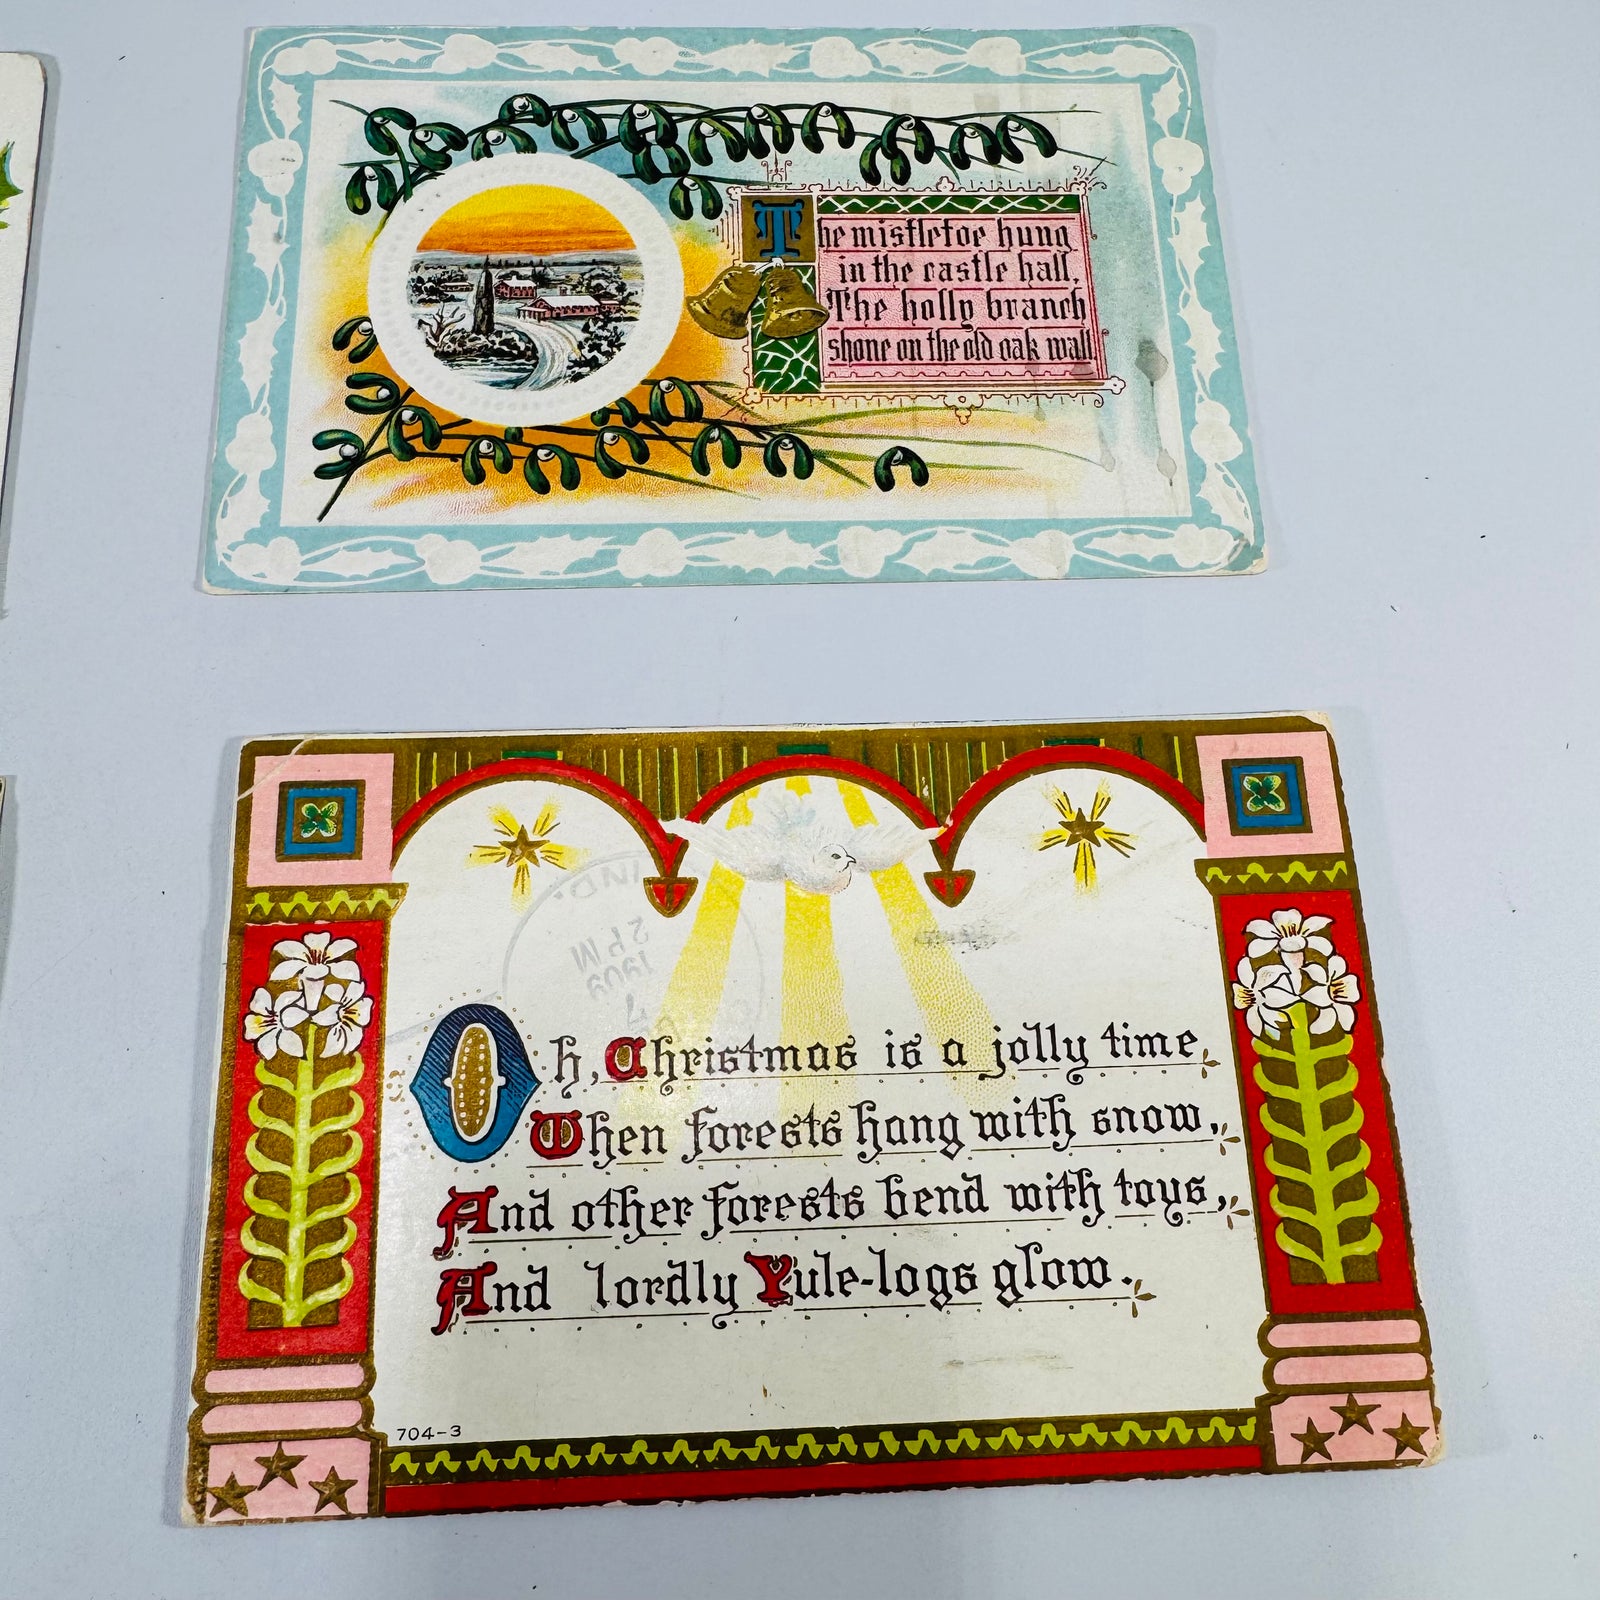 The mistletoe hung
in the castle hall,
The holly branch
shone on the old oak wall.
IND.
2 PM
1909
7
Oh, Christmas is a jolly time,
When forests hang with snow,
And other forests bend with toys,
And lordly Yule-logs glow.
704-3